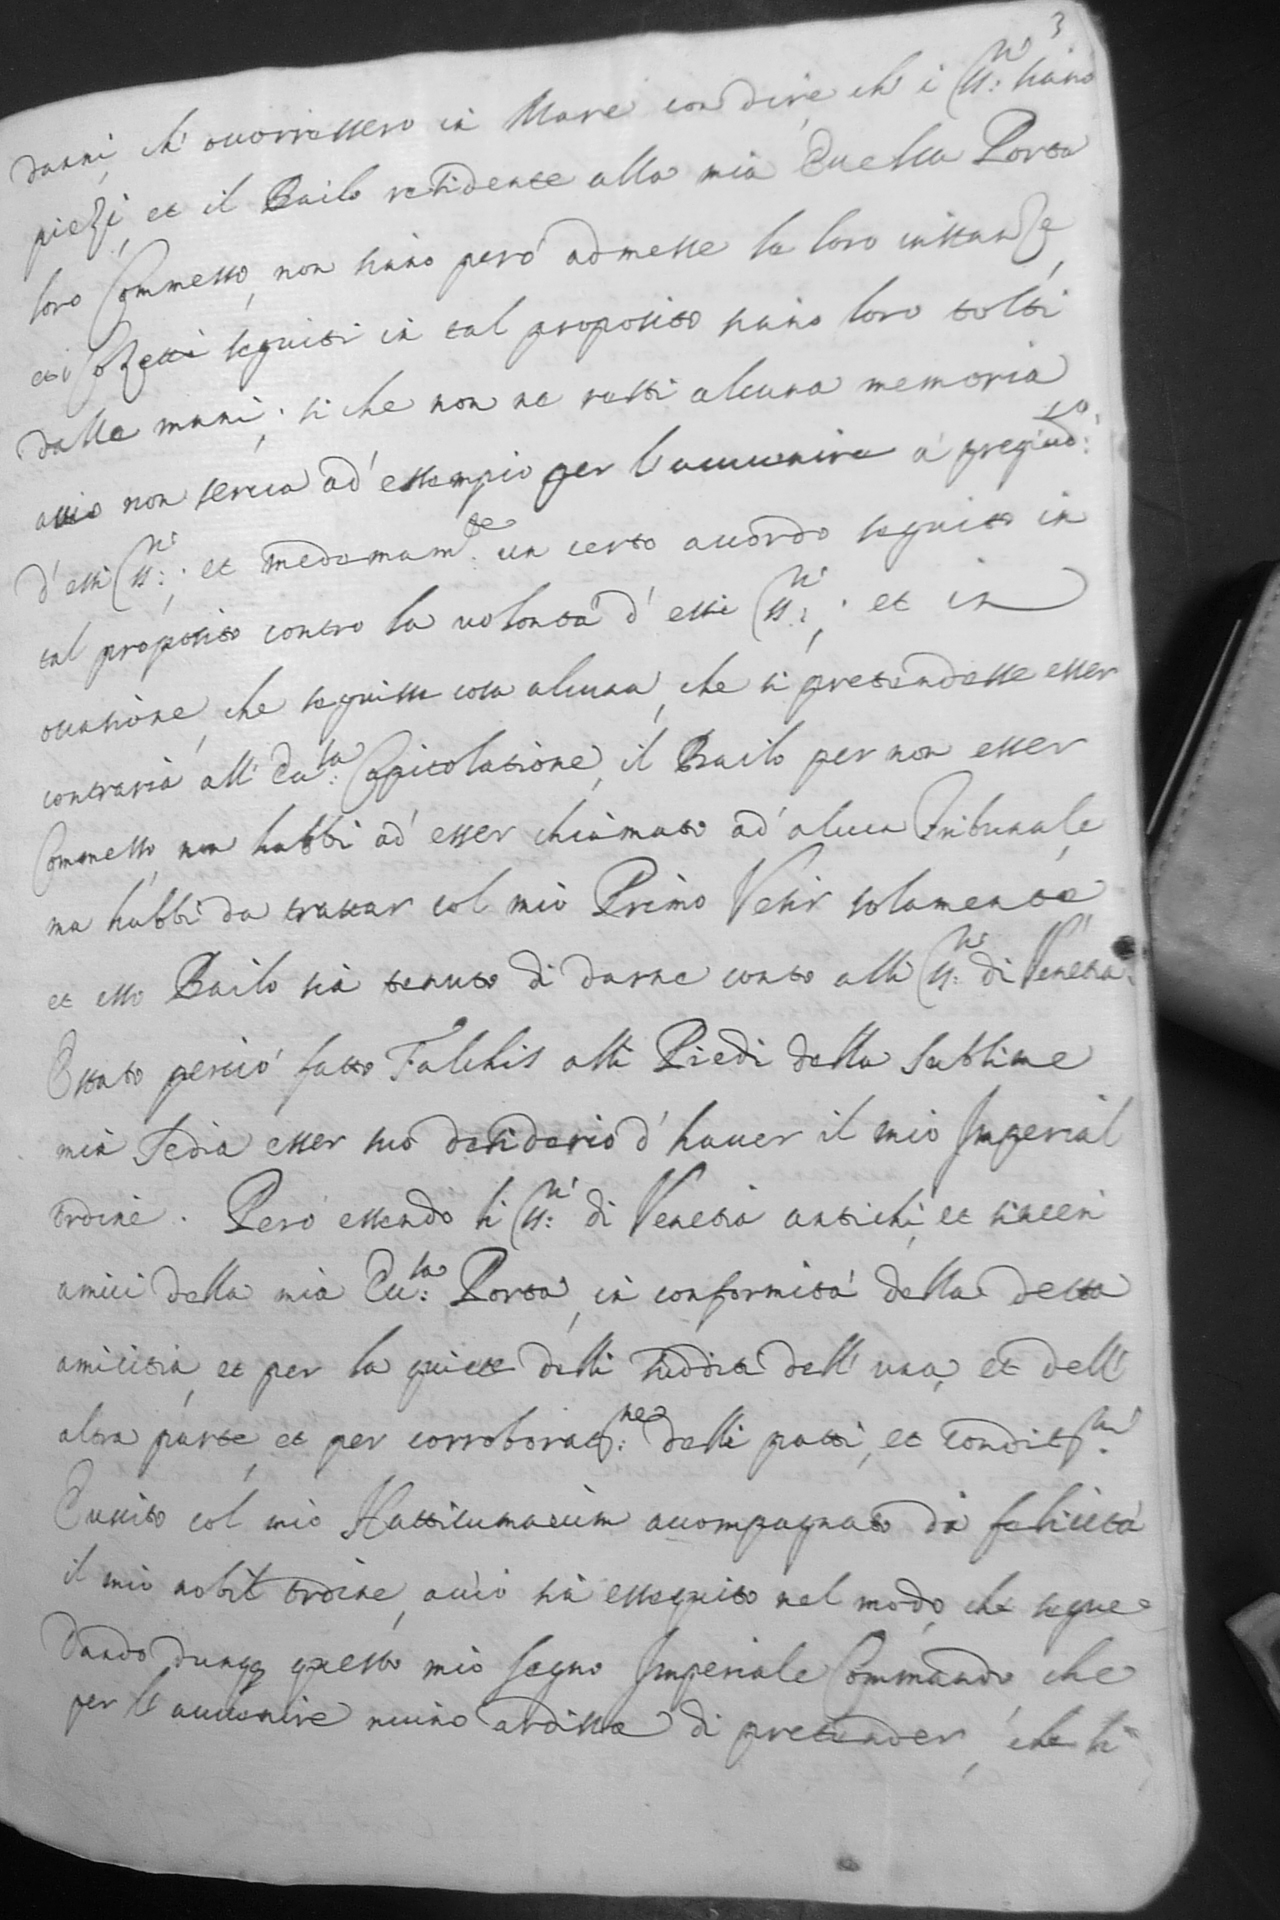 3
danni, ch' occorressero in Mare con dire, ch' i SS:ri siano
piezi, et il Bailo residente alla mia Eccelsa Porta
loro Commesso, non siano però admesse le loro instanze,
et i Hozetti seguiti in tal proposito siano loro tolti
dalle mani; si che non ne resti alcuna memoria
acciò non serva ad' essempio per l'avvenire a' pregiud:o
d'essi SS:ri; et medemam:te un certo accordo seguito in
tal proposito contro la volontà d' essi SS:ri; et in
occasione, che seguisse cosa alcuna, che si pretendesse esser
contraria all' Ecc:sa Capitolatione, il Bailo per non esser
Commesso, non habbi ad' esser chiamato ad' alcun Tribunale,
ma habbi da trattar col mio Primo Vesir solamente
et esso Bailo sia tenuto di darne conto alli SS:ri di Venetia.
È stato perciò fatto Talchis alli Piedi della sublime
mia Sedia esser suo desiderio d' haver il mio Imperial
ordine. Però essendo li SS:ri di Venetia antichi, et sinceri
amici della mia Ecc:sa Porta, in conformità della detta
amicitia, et per la quiete delli sudditi dell' una, et dell'
altra parte, et per corroborat:ne delli patti, et condit:ni
È uscito col mio Hattihumaium accompagnato da felicità
il mio nobil ordine, acciò sia essequito nel modo, che segue
Dando dunq questo mio segno Imperiale Commando che
per l' avvenire niuno ardisca di pretender, che li